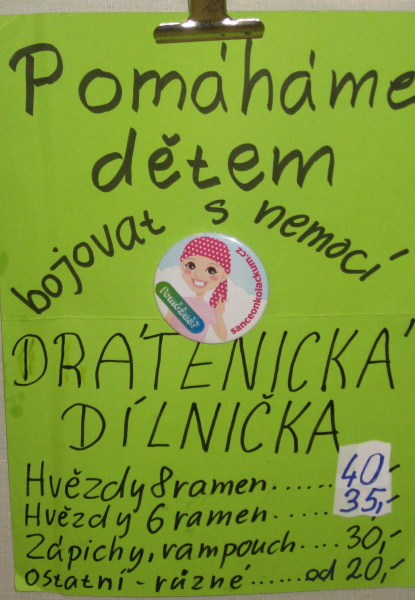 Pomáháme
dětem
bojovat s nemocí
sanceonkolackum.cz
DRÁTENICKÁ
DÍLNIČKA
Hvězdy 8 ramen...... 40,-
Hvězdy 6 ramen..... 35,-
Zápichy, vampouch.... 30,-
Ostatní - různé......od 20,-